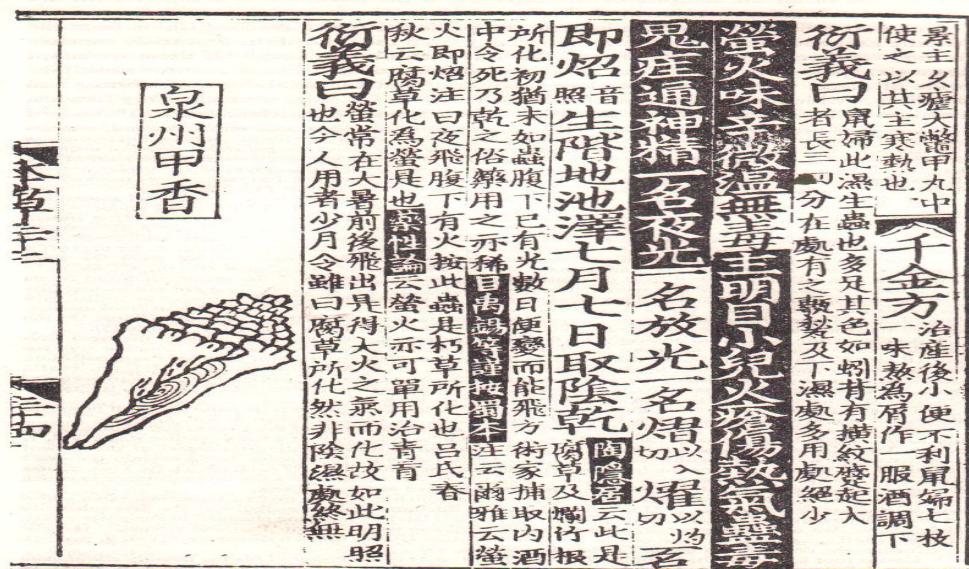 景主久瘧大鱉甲丸中
使之以其主寒熱也
千金方
治産後小便不利鼠婦七枚
一味熬為屑作一服酒調下
衍義曰
鼠婦此濕生蟲也多足其色如蚓背有横紋蹙起大
者長三四分在處有之甎甃及下濕處多用處絕少
螢火味辛微溫無毒主明目小兒火瘡傷熱氣蠱毒
鬼疰通神精一名夜光一名放光一名熠以入切燿以灼切一名
即炤音照生階地池澤七月七日取陰乾陶隱居云此是腐草及爛竹根
所化初猶未如蟲腹下已有光數日便變而能飛方術家捕取内酒
中令死乃乾之俗藥用之亦稀臣禹錫等謹按蜀本注云爾雅云螢
火即炤注曰夜飛腹下有火按此蟲是朽草所化也吕氏春
秋云腐草化為螢是也藥性論云螢火亦可單用治青盲
衍義曰
螢常在大暑前後飛出是得大火之氣而化故如此明照
也今人用者少月令雖曰腐草所化然非陰濕處終無
泉州甲香
本草